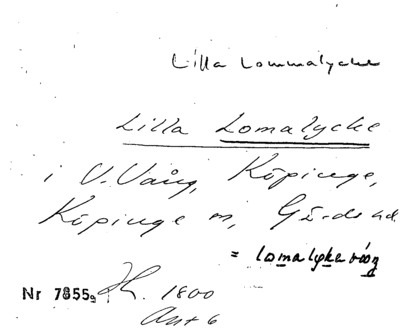 Lilla Lommalycke
Lilla Lomalycke
i V. Vång, Köpinge,
Köpinge sn, Gärds hd.
= lomalyka vång
Nr 7855a H. 1800
Akt 6